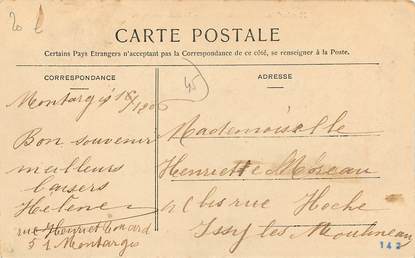 20 £
CARTE POSTALE
Certains Pays Etrangers n'acceptant pas la Correspondance de ce côté, se renseigner à la Poste.
CORRESPONDANCE
Montargis
Bon souvenir
meilleurs
baisers
Hélène
rue
51 Montargis
45
ADRESSE
Mademoiselle
Henriette Moreau
bis rue Hoche
Issy les Moulineau
142